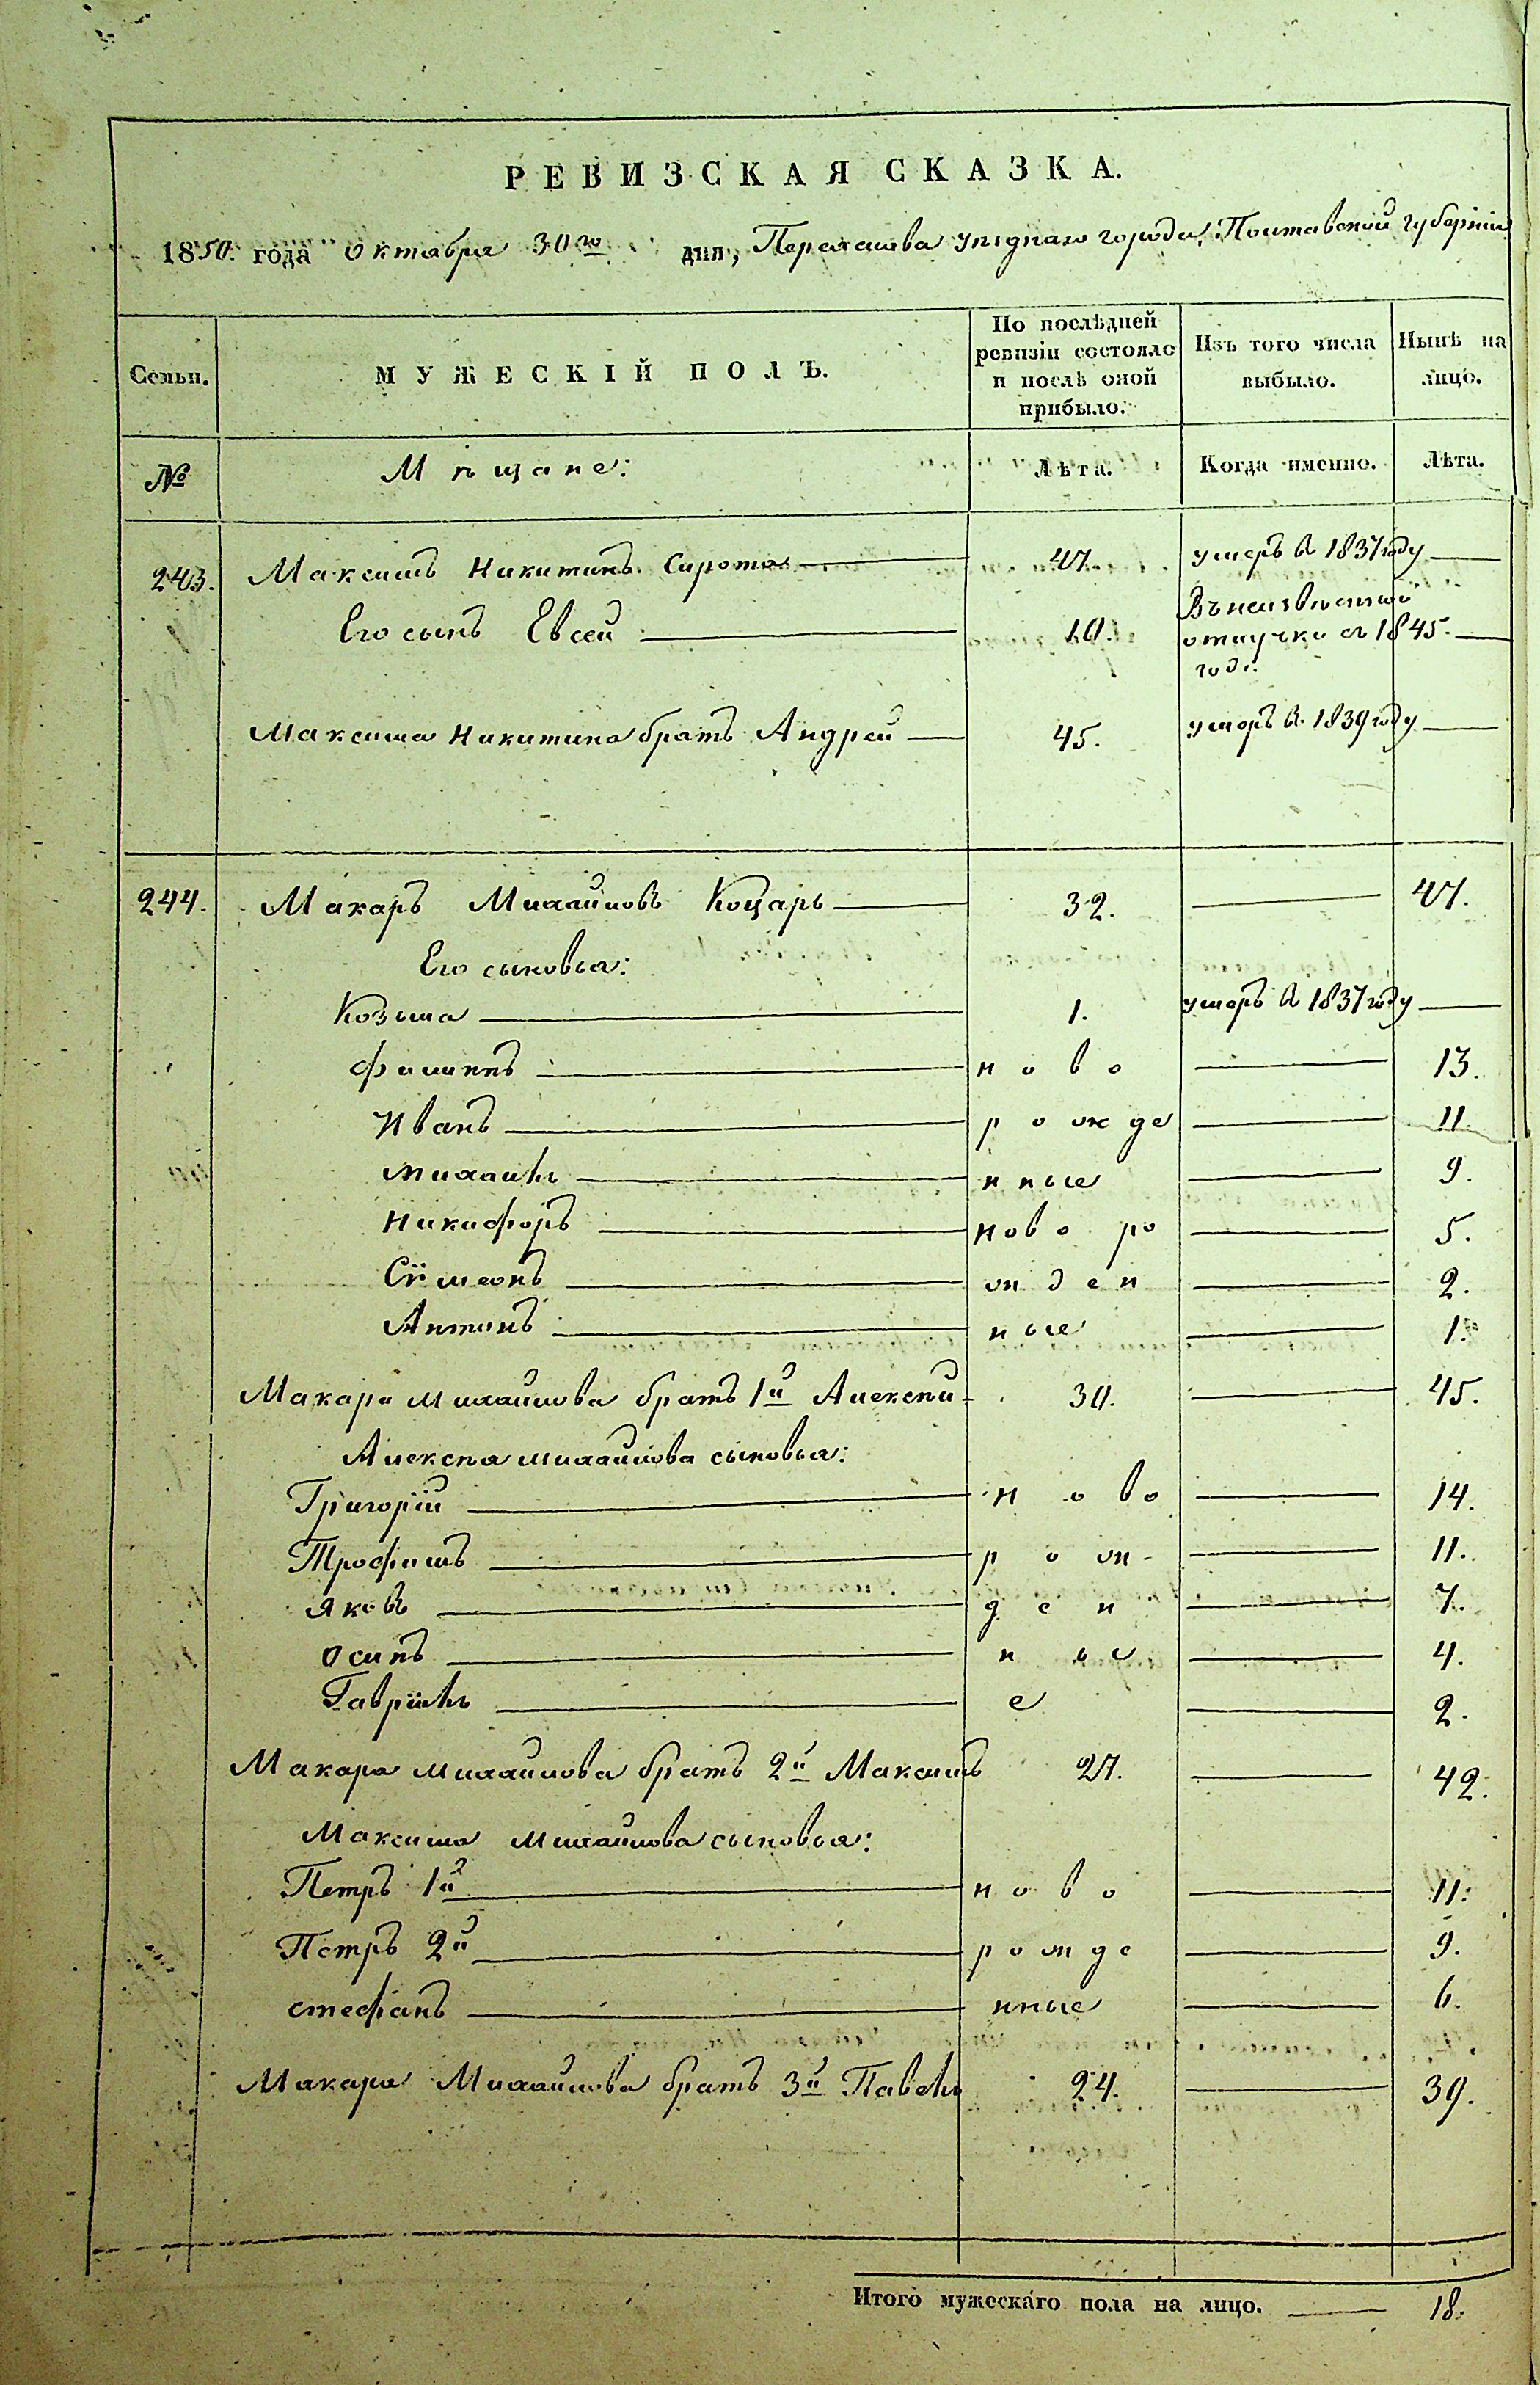 РЕВИЗСКАЯ СКАЗКА.
1850. года Октября 30го дня, Переяслава уѣзднаго города, Полтавской губерніи
Семьи.
МУЖЕСКІЙ ПОЛЪ.
По послѣдней ревизіи состояло и послѣ оной прибыло.
Изъ того числа выбыло.
Нынѣ на лицо.
№
Мѣщане:
Лѣта.
Когда именно.
Лѣта.
243. Максимъ Никитинъ Сирота 47. умеръ въ 1837 году
Его сынъ Евсей 10. Въ неизвѣстной
отлучкѣ съ 1845.
года.
Максима Никитина братъ Андрей 45. умеръ въ 1839 году
244. Макаръ Михайловъ Коцарь 32. 47.
Его сыновья:
Козьма 1. умеръ въ 1837 году
Филиппъ ново 13.
Иванъ рожде 11.
Михаилъ нные 9.
Никифоръ ново ро 5.
Сѵмеонъ жден 2.
Антонъ ные 1.
Макара Михайлова братъ 1й Алексѣй 30. 45.
Алексѣя Михайлова сыновья:
Григорій ново 14.
Трофимъ рож- 11.
Яковъ ден 7.
Осипъ ны 4.
Гавріилъ е 2.
Макара Михайлова братъ 2й Максимъ 27. 42.
Максима Михайлова сыновья:
Петръ 1й ново 11.
Петръ 2й рожде 9.
Стефанъ нные 6.
Макара Михайлова братъ 3й Павелъ 24. 39.
Итого мужескаго пола на лицо. 18.